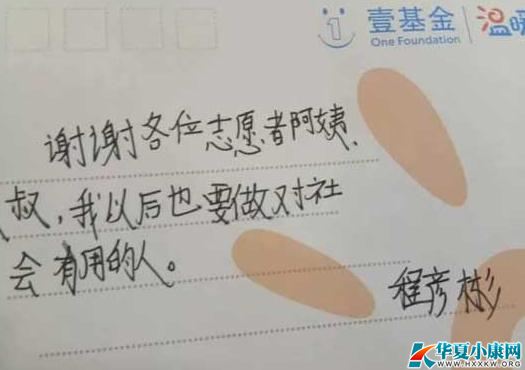 壹基金
One Foundation
温暖
谢谢各位志愿者阿姨、
叔,我以后也要做对社
会有用的人。
程彦彬
华夏小康网
WWW.HXXKW.ORG